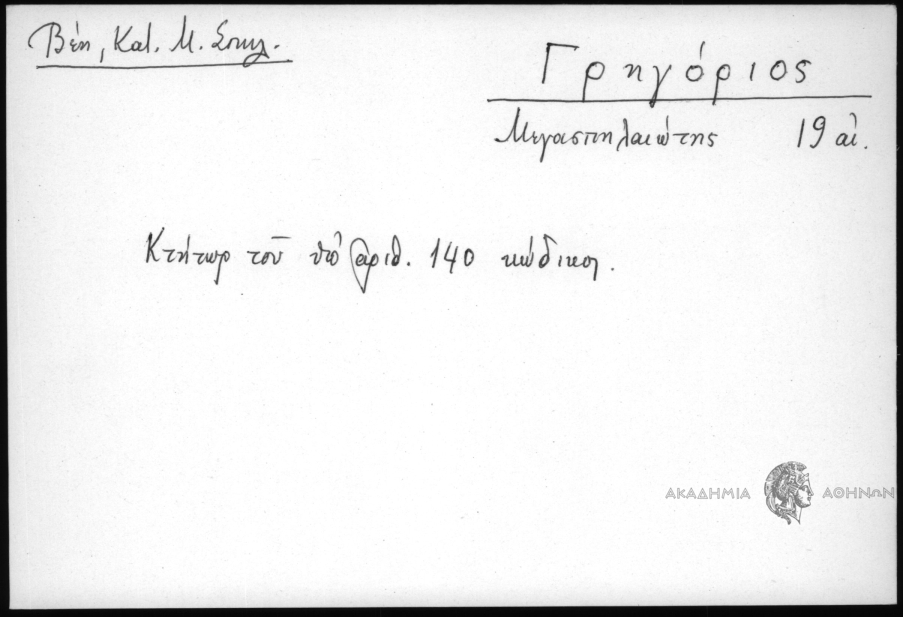 Βέη, Κατ. Μ. Σπηλ.
Γρηγόριος
Μεγασπηλαιώτης 19 αἰ.
Κτήτωρ τοῦ ὑπ' ἀριθ. 140 κώδικος.
ΑΚΑΔΗΜΙΑ ΑΘΗΝΩΝ